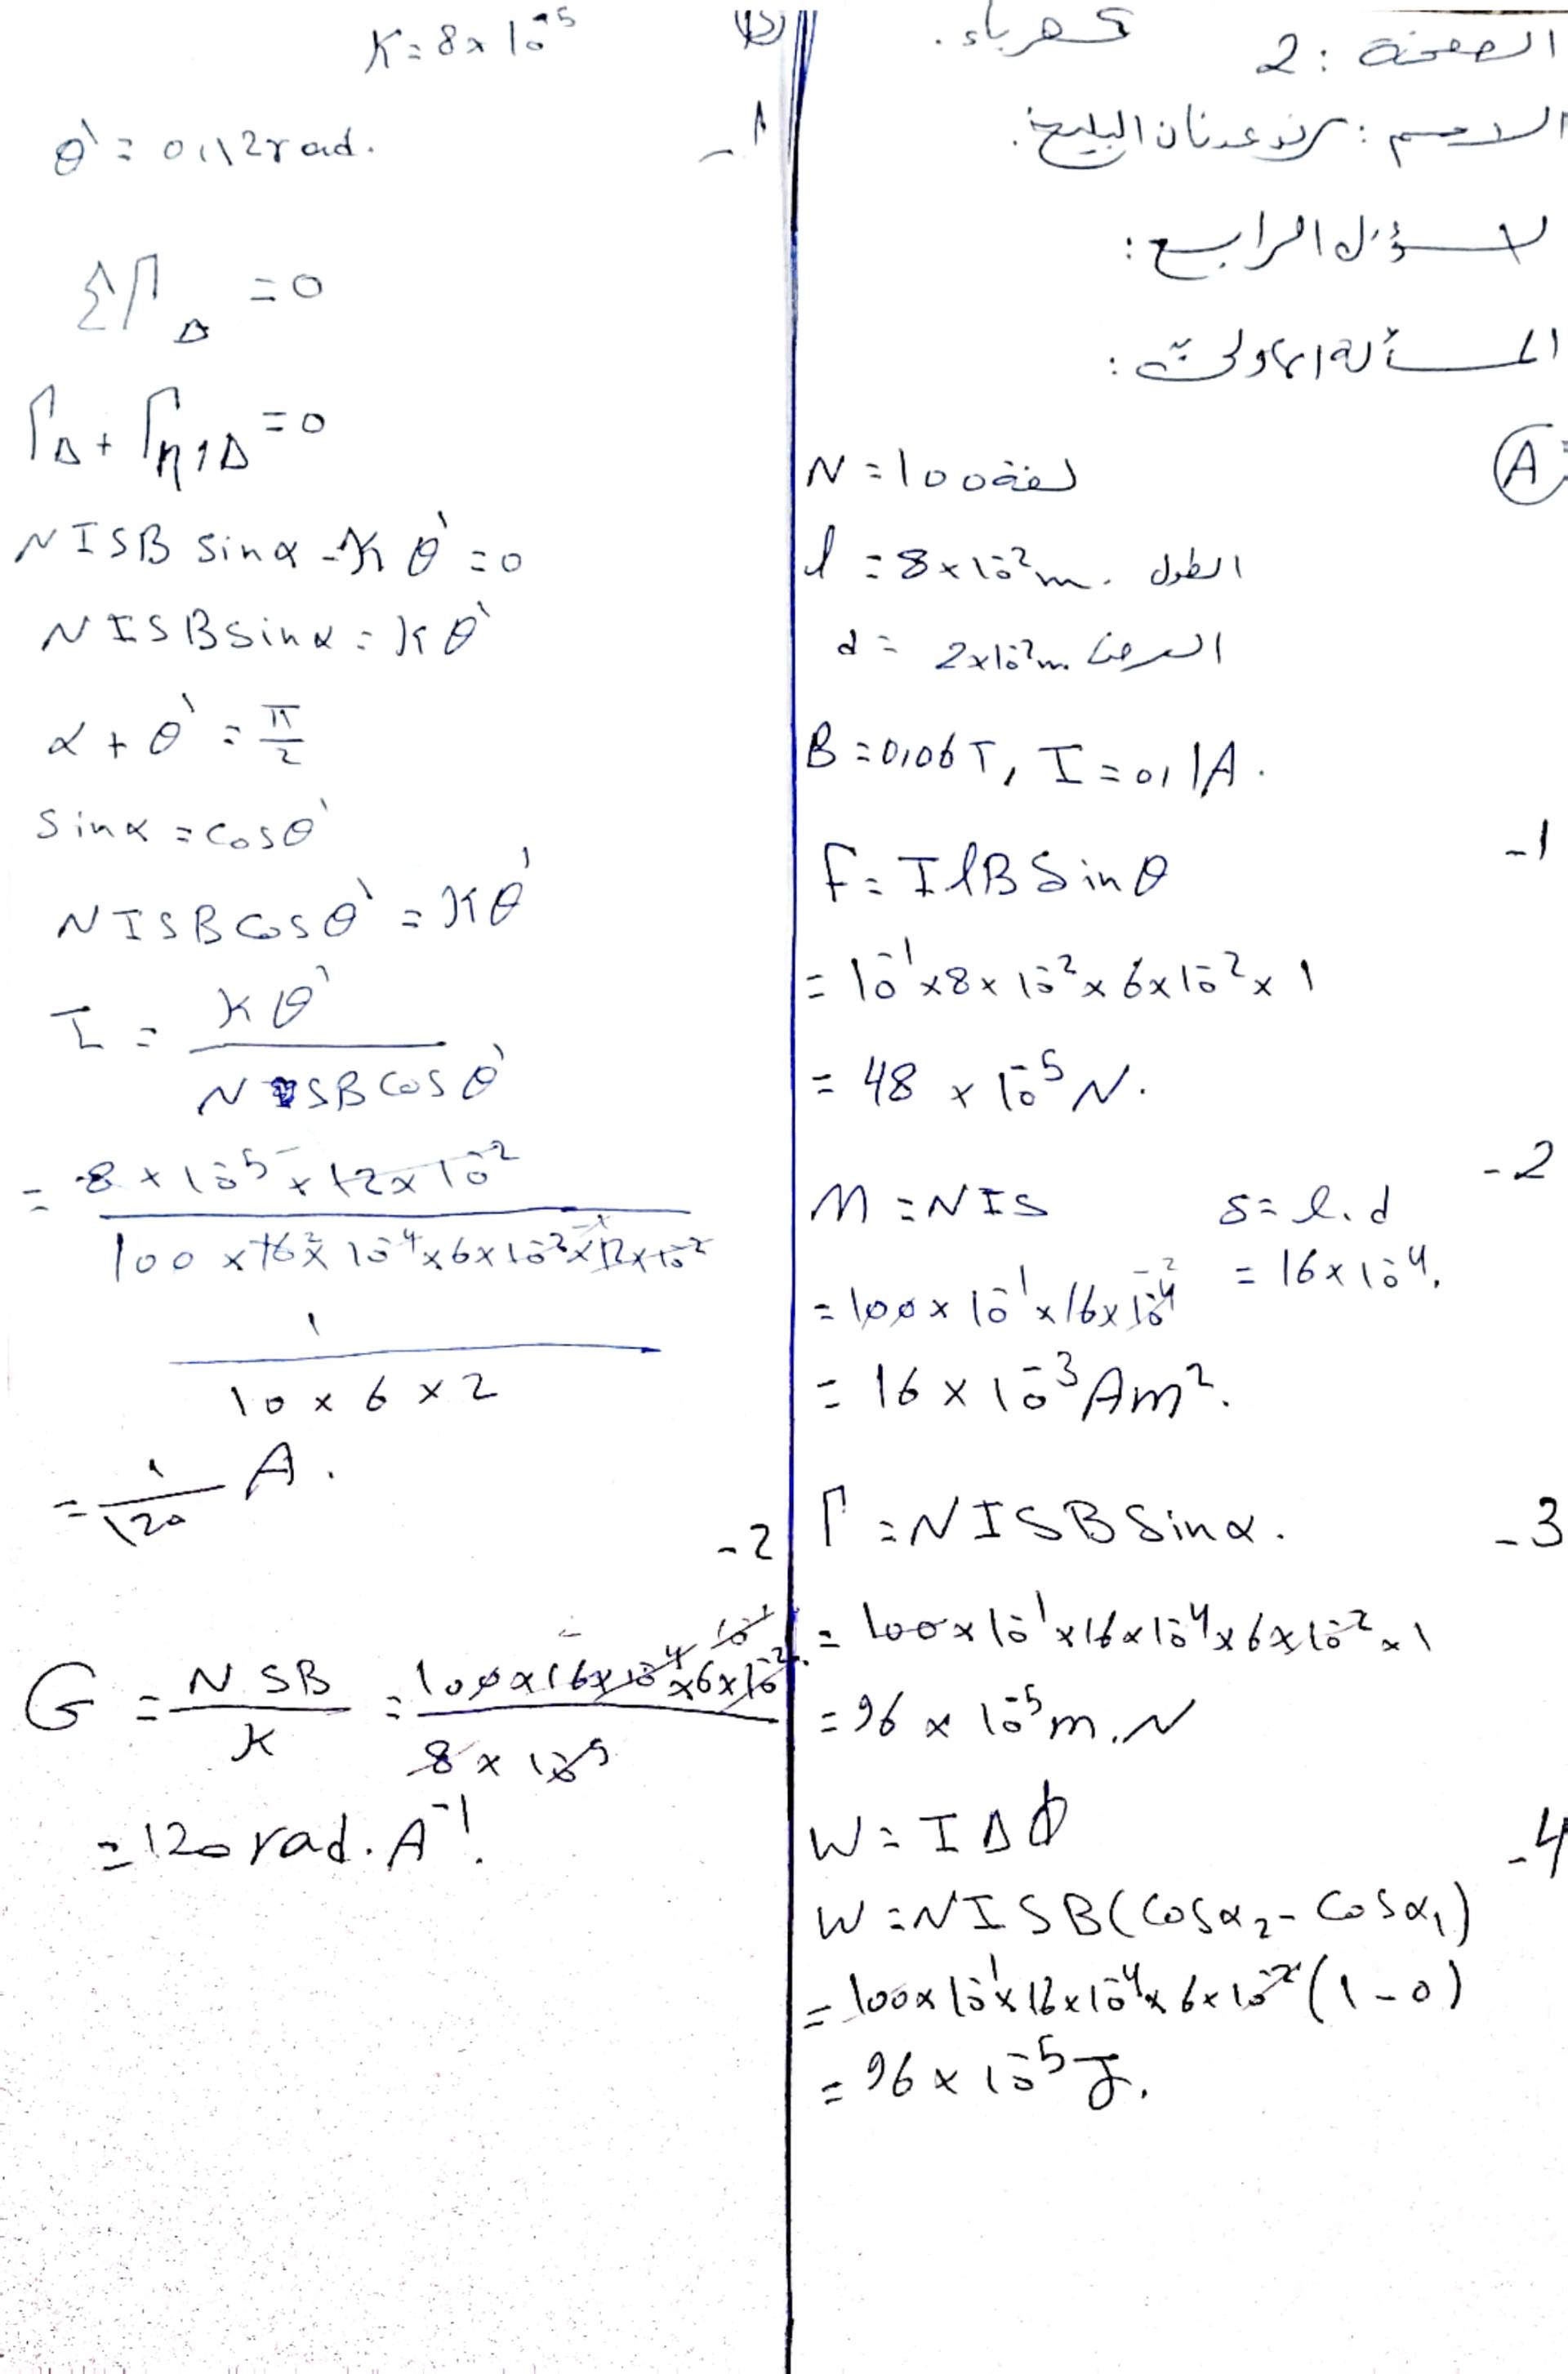 الصفحة : 2
كهرباء.
الاسم : رند عدنان البليخ.
السؤال الرابع :
المسألة الأولى :
A
N = 100 لفة
l = 8×10⁻² m. الطول
d = 2×10⁻² m. العرض
B = 0,06 T, I = 0,1 A.
-1
F = I l B Sin θ
= 10⁻¹ × 8 × 10⁻² × 6×10⁻² × 1
= 48 × 10⁻⁵ N.
-2
M = NIS S = l.d
= 16×10⁻⁴.
= 100 × 10⁻¹ × 16 × 10⁻⁴
= 16 × 10⁻³ Am².
-3
Γ = NISB Sin α.
= 100 × 10⁻¹ × 16 × 10⁻⁴ × 6 × 10⁻² × 1
= 96 × 10⁻⁵ m.N
-4
W = I Δ Φ
W = NISB (Cos α₂ - Cos α₁)
= 100 × 10⁻¹ × 16 × 10⁻⁴ × 6 × 10⁻² (1 - 0)
= 96 × 10⁻⁵ J.
B
K = 8×10⁻⁵
-1
θ' = 0,12 rad.
ΣΓ_Δ = 0
Γ_Δ + Γ_η/Δ = 0
NISB Sin α - K θ' = 0
NISB Sin α = K θ'
α + θ' = π/2
Sin α = Cos θ'
NISB Cos θ' = K θ'
I = K θ' / NSB Cos θ'
= 8 × 10⁻⁵ × 12 × 10⁻² / 100 × 16 × 10⁻⁴ × 6 × 10⁻²
1 / 10 × 6 × 2
= 1/120 A.
-2
G = NSB / K = 100 × 16 × 10⁻⁴ × 6 × 10⁻² / 8 × 10⁻⁵
= 120 rad. A⁻¹.